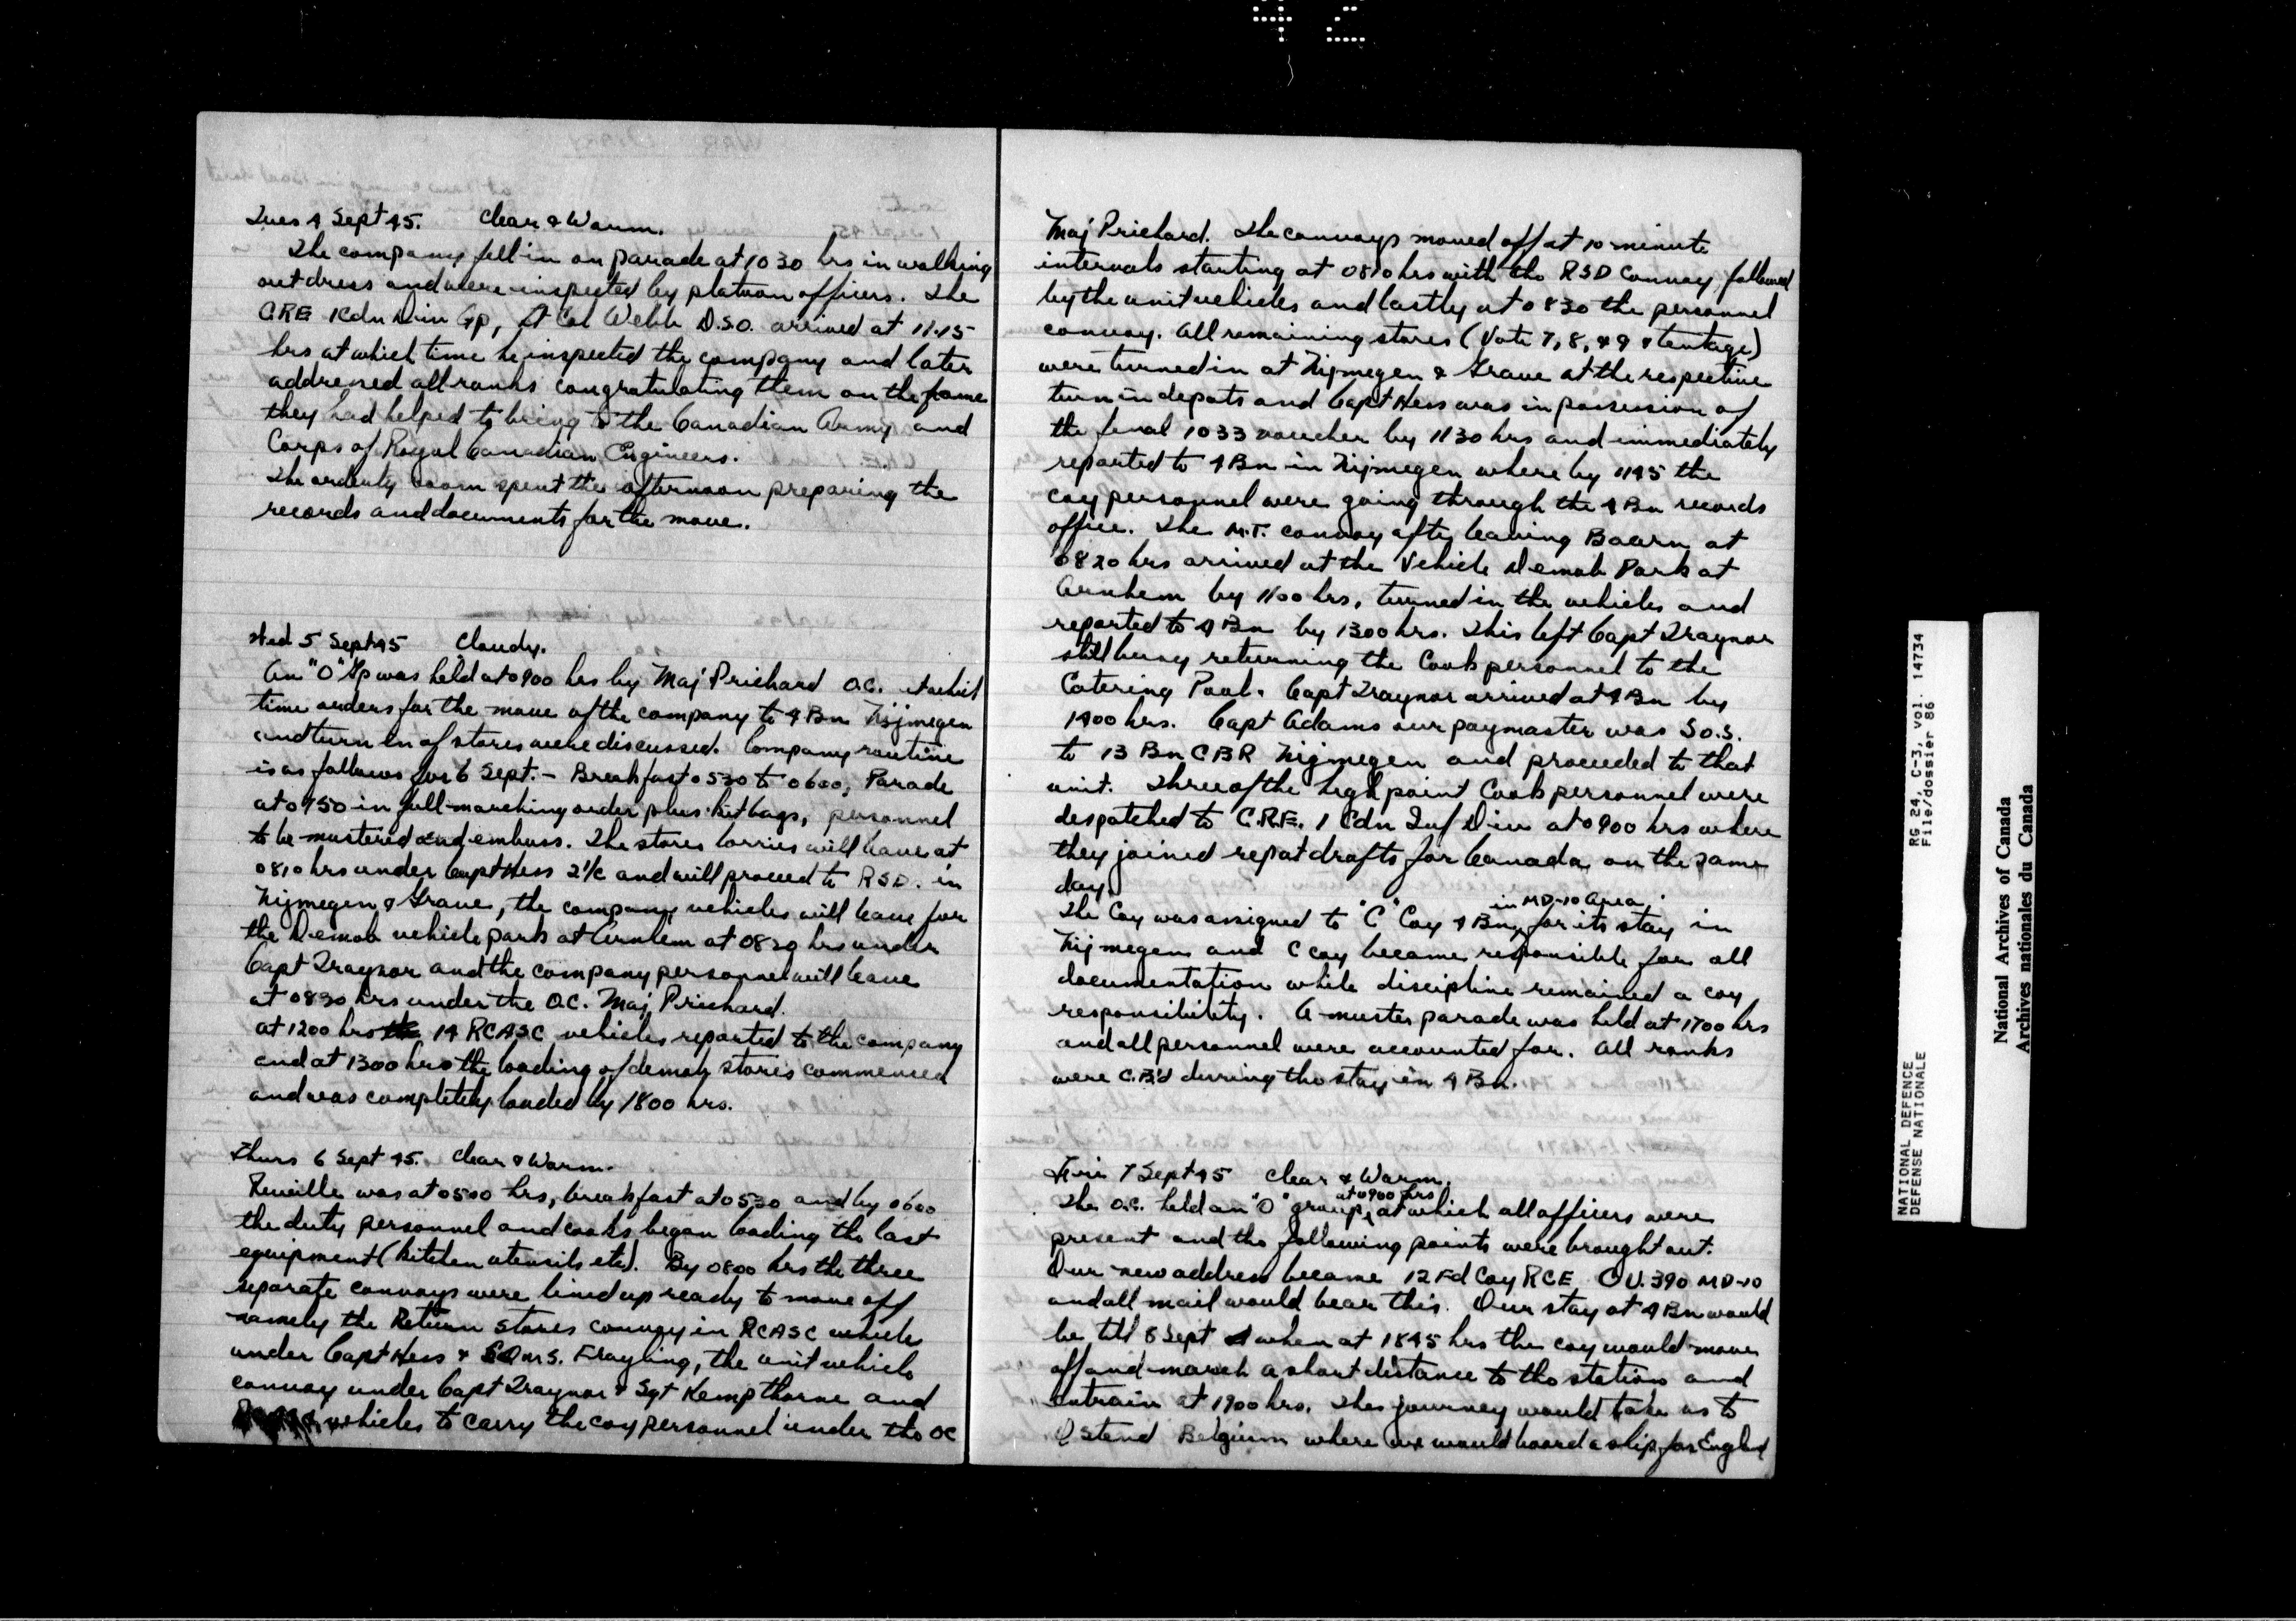 42
Tues 4 Sept 45. Clear & Warm.
The company fell in on parade at 1030 hrs in walking
out dress and were inspected by platoon officers. The
CRE 1 Cdn Div Gp, Lt Col Webb D.S.O. arrived at 11.15
hrs at which time he inspected the company and later
addressed all ranks congratulating them on the fame
they had helped to bring to the Canadian Army and
Corps of Royal Canadian Engineers.
The orderly room spent the afternoon preparing the
records and documents for the move.
Wed 5 Sept 45 Cloudy.
An "O" Gp was held at 0900 hrs by Maj Prichard O.C. at which
time orders for the move of the company to 4 Bn Nijmegen
and turn in of stores were discussed. Company routine
is as follows for 6 Sept. - Breakfast 0530 to 0600, Parade
at 0750 in full marching order plus kit bags, personnel
to be mustered and embuss. The stores lorries will leave at
0810 hrs under Capt Hess 2 I/c and will proceed to R.S.D. in
Nijmegen & Grave, the company vehicles will leave for
the Demob vehicle park at Arnhem at 0820 hrs under
Capt Traynor and the company personnel will leave
at 0830 hrs under the O.C. Maj Prichard.
at 1200 hrs the 14 RCASC vehicles reported to the company
and at 1300 hrs the loading of demob stores commenced
and was completely loaded by 1800 hrs.
Thurs 6 Sept 45. Clear & Warm.
Reveille was at 0500 hrs, breakfast at 0530 and by 0600
the duty personnel and cooks began loading the last
equipment (kitchen utensils etc). By 0800 hrs the three
separate convoys were lined up ready to move off
namely the Return stores convoy in RCASC vehicles
under Capt Hess & SQMS. Frayling, the unit vehicle
convoy under Capt Traynor & Sgt Kempthorne and
vehicles to carry the coy personnel under the OC
Maj Prichard. The convoys moved off at 10 minute
intervals starting at 0810 hrs with the RSD Convoy followed
by the unit vehicles and lastly at 0830 the personnel
convoy. All remaining stores (Vote 7, 8, & 9 & tentage)
were turned in at Nijmegen & Grave at the respective
turn in depots and Capt Hess was in possession of
the final 1033 voucher by 1130 hrs and immediately
reported to 4 Bn in Nijmegen where by 1145 the
coy personnel were going through the 4 Bn records
office. The M.T. convoy after leaving Baarn at
0820 hrs arrived at the Vehicle Demob Park at
Arnhem by 1100 hrs, turned in the vehicles and
reported to 4 Bn by 1300 hrs. This left Capt Traynor
still busy returning the Cook personnel to the
Catering Pool. Capt Traynor arrived at 4 Bn by
1400 hrs. Capt Adams our paymaster was S.O.S.
to 13 Bn CBR Nijmegen and proceeded to that
unit. Three of the high point Cook personnel were
despatched to C.R.E. 1 Cdn Inf Div at 0900 hrs where
they joined repat drafts for Canada on the same
day.
in MD-10 Area,
The Coy was assigned to "C" Coy 4 Bn for its stay in
Nijmegen and C coy became responsible for all
documentation while discipline remained a coy
responsibility. A muster parade was held at 1700 hrs
and all personnel were accounted for. All ranks
were C.B'd during the stay in 4 Bn.
Fri 7 Sept 45 Clear & Warm.
at 0900 hrs
The O.C. held an "O" group, at which all officers were
present and the following points were brought out.
Our new address became 12 Fd Coy RCE CU.390 MD-10
and all mail would bear this. Our stay at 4 Bn would
be till 8 Sept when at 1845 hrs the coy would move
off and march a short distance to the station and
entrain at 1900 hrs. The journey would take us to
Ostend Belgium where we would board a ship for England
NATIONAL DEFENCE RG 24, C-3, vol. 14734
DEFENSE NATIONALE File/dossier 86
National Archives of Canada
Archives nationales du Canada